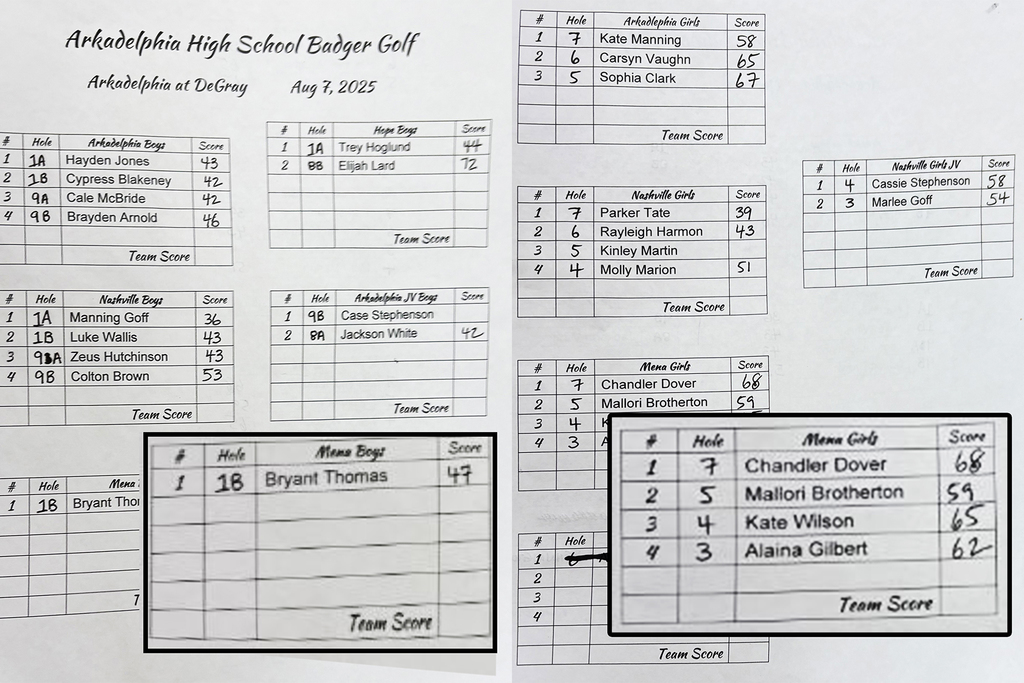 Arkadelphia High School Badger Golf
Arkadelphia at DeGray Aug 7, 2025
# Hole Arkadelphia Boys Score
1 1A Hayden Jones 43
2 1B Cypress Blakeney 42
3 9A Cale McBride 42
4 9B Brayden Arnold 46
Team Score
# Hole Hope Boys Score
1 1A Trey Hoglund 44
2 8B Elijah Lard 72
Team Score
# Hole Nashville Boys Score
1 1A Manning Goff 36
2 1B Luke Wallis 43
3 9A Zeus Hutchinson 43
4 9B Colton Brown 53
Team Score
# Hole Arkadelphia JV Boys Score
1 9B Case Stephenson
2 8A Jackson White 42
Team Score
# Hole Mena
1 1B Bryant Thor
T
# Hole Mena Boys Score
1 1B Bryant Thomas 47
Team Score
# Hole Arkadlephia Girls Score
1 7 Kate Manning 58
2 6 Carsyn Vaughn 65
3 5 Sophia Clark 67
Team Score
# Hole Nashville Girls Score
1 7 Parker Tate 39
2 6 Rayleigh Harmon 43
3 5 Kinley Martin
4 4 Molly Marion 51
Team Score
# Hole Nashville Girls JV Score
1 4 Cassie Stephenson 58
2 3 Marlee Goff 54
Team Score
# Hole Mena Girls Score
1 7 Chandler Dover 68
2 5 Mallori Brotherton 59
3 4 K
4 3 A
# Hole Mena Girls Score
1 7 Chandler Dover 68
2 5 Mallori Brotherton 59
3 4 Kate Wilson 65
4 3 Alaina Gilbert 62
Team Score
# Hole
1 6
2
3
4
Team Score